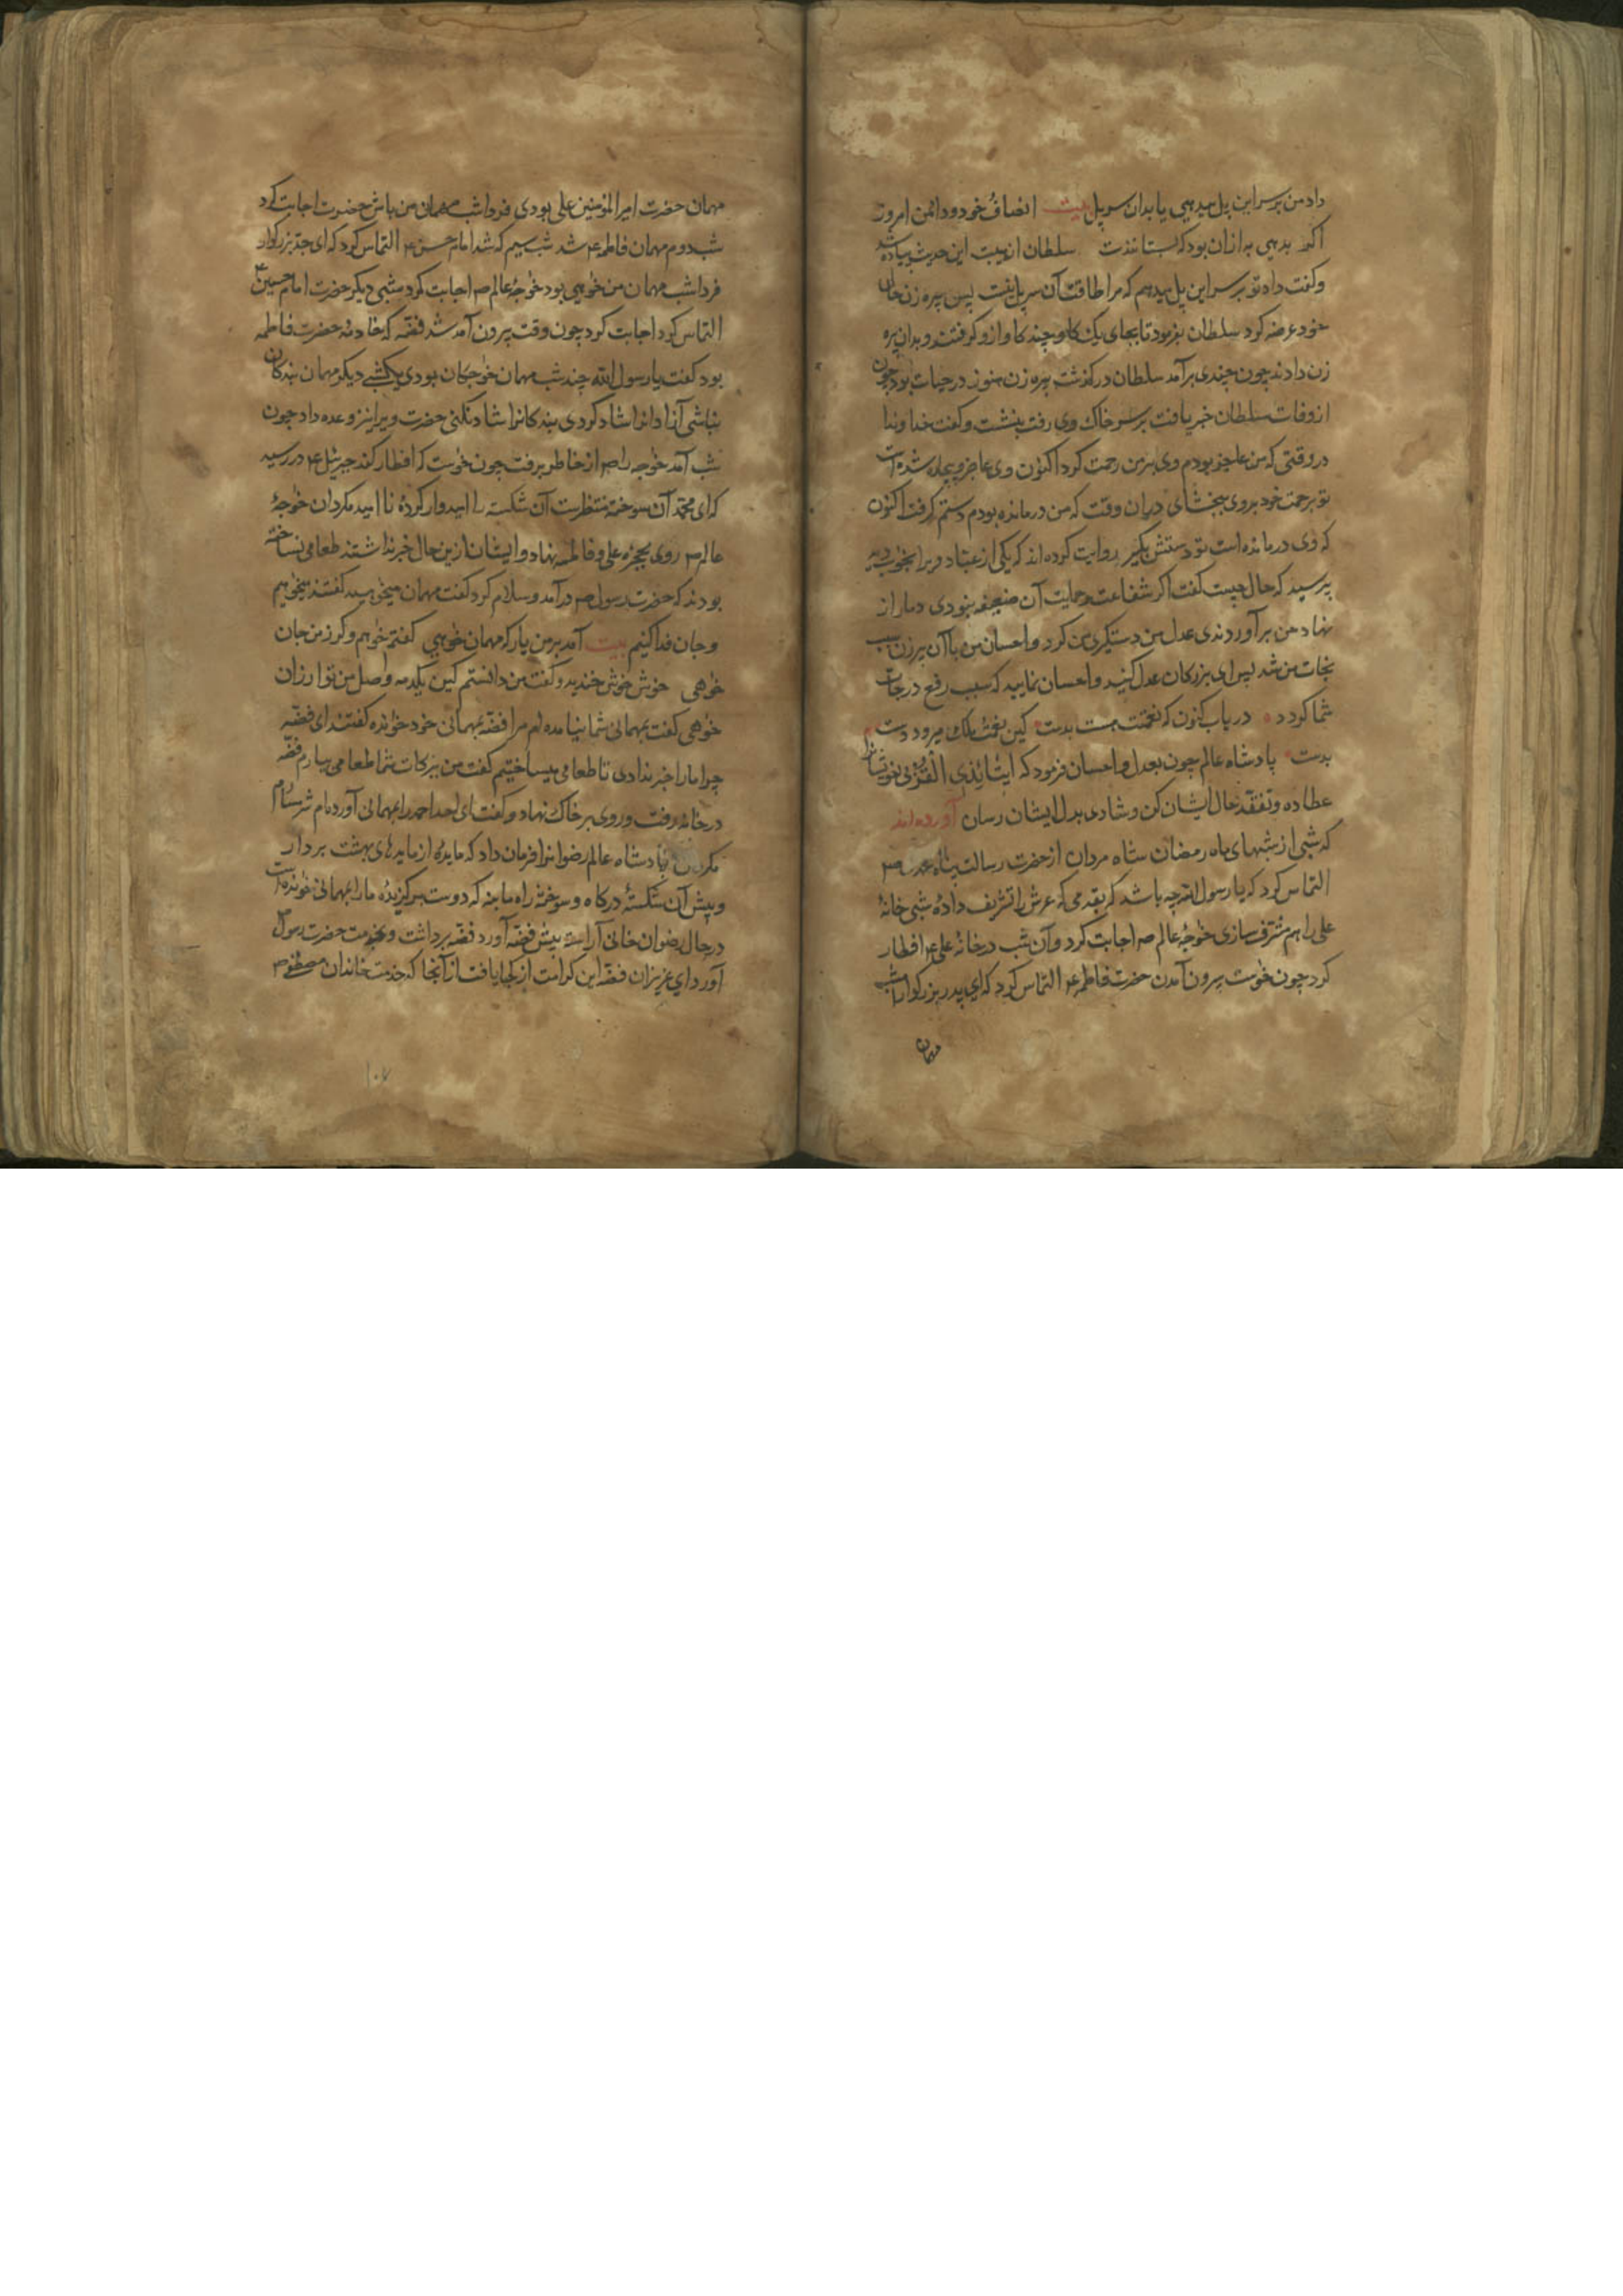 داد من بر سر این پل میدهی یا بدان سر پل بیت انصاف خود و دائمن امروز
اگر بدهی به ازان بود که بستانندت سلطان از هیبت این حدیث پیاده شد
و گفت داد تو بر سر این پل میدهم که مرا طاقت آن سر پل نیست پس پیره زن حال
خود عرضه کرد سلطان بفرمود تا بجای یک گاو چند گاو ازو گرفتند و بدان پیره
زن دادند چون چندی برآمد سلطان درگذشت پیره زن هنوز در حیات بود چون
از وفات سلطان خبر یافت بر سر خاک وی رفت بنشست و گفت خداوندا
در وقتی که من عاجز بودم وی بر من رحمت کرد اکنون وی عاجز و بیچاره شده است
تو برحمت خود بر وی ببخشای دران وقت که من درمانده بودم دستم گرفت اکنون
که وی درمانده است تو دستش بگیر روایت کرده اند که یکی از عباد ویرا بخواب دید
پرسید که حال چیست گفت اگر شفاعت و حمایت آن ضعیفه نبودی دمار از
نهاد من برآوردندی عدل من دستگیری من کرد و احسان من با آن پیرزن سبب
نجات من شد پس ای بزرگان عدل کنید و احسان نمایید که سبب رفع درجات
شما گردد دریاب کنون که نعمتت هست بدست کین نعمت ملک میرود دست
بدست پادشاه عالم چون بعدل و احسان فرمود که ایتائ ذی القربی خویشانرا
عطا ده و تفقد حال ایشان کن و شادی بدل ایشان رسان آورده اند
که شبی از شبهای ماه رمضان شاه مردان از حضرت رسالت پناه محمد ص
التماس کرد که یا رسول الله چه باشد گر بقدمی که عرش را تشریف دادهٔ شبی خانهٔ
علی را هم مشرف سازی خواجهٔ عالم ص اجابت کرد و آن شب در خانهٔ علی ع افطار
کرد چون خواست بیرون آمدن حضرت فاطمه ع التماس کرد که ای پدر بزرگوار امشب
مهمان
مهمان حضرت امیر المؤمنین علی بودی فردا شب مهمان من باش حضرت اجابت کرد
شب دوم مهمان فاطمه ع شد شب سیم که شد امام حسن ع التماس کرد که ای جد بزرگوار
فردا شب مهمان من خواهی بود خواجهٔ عالم ص اجابت کرد شبی دیگر حضرت امام حسین ع
التماس کرد اجابت کرد چون وقت بیرون آمد شد فضه که خادمهٔ حضرت فاطمه
بود گفت یا رسول الله چند شب مهمان خواجگان بودی یکشبی دیگر مهمان بندگان
نباشی آزادانرا شاد کردی بندگانرا شاد نکنی حضرت ویرا نیز وعده داد چون
شب آمد خواجه را ص از خاطر برفت چون خواست که افطار کند جبرئیل ع در رسید
که ای محمد آن سوخته منتظرست آن شکسته را امیدوار کردهٔ نا امید مگردان خواجهٔ
عالم ص روی بحجرهٔ علی و فاطمه نهاد و ایشان ازین حال خبر نداشتند طعامی نساخته
بودند که حضرت رسول ص درآمد و سلام کرد گفت مهمان میخواهید گفتند میخواهیم
و جان فدا کنیم بیت آمد بر من یار که مهمان خواهی گفتم خواهم و گر ز من جان
خواهی خوش خوش خندید و گفت من دانستم کین یکدمه وصل من تو ارزان
خواهی گفت بمهمانی شما نیامده ام مرا فضه بمهمانی خود خوانده گفتند ای فضه
چرا ما را خبر ندادی تا طعامی میساختیم گفت من ببرکات شما طعامی بیارم فضه
در خانه رفت و روی بر خاک نهاد و گفت ای احد احمد را بمهمانی آورده ام شرمسارم
مگردان پادشاه عالم رضوانرا فرمان داد که مایدهٔ از مایدهای بهشت بردار
و پیش آن شکستهٔ درگاه و سوختهٔ راه ما بنه که دوست برگزیدهٔ ما را بمهمانی خوانده است
در حال رضوان خانی آراسته پیش فضه آورد فضه برداشت و بخدمت حضرت رسول ص
آورد ای عزیزان فضه این کرامت از کجا یافت از آنجا که خدمت خاندان مصطفی ص
۱۰۷